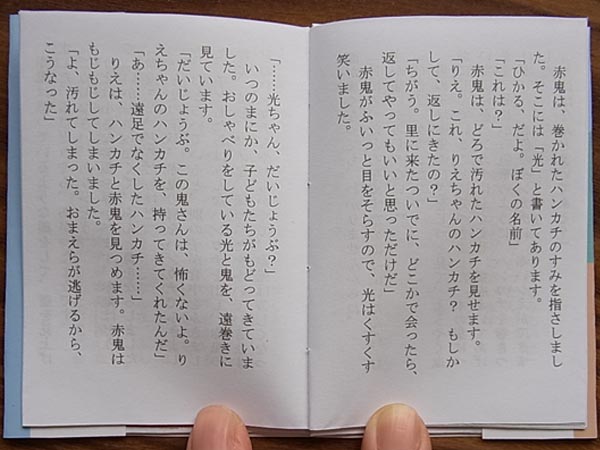 赤鬼は、巻かれたハンカチのすみを指さしまし
た。そこには「光」と書いてあります。
「ひかる、だよ。ぼくの名前」
「これは？」
　赤鬼は、どろで汚れたハンカチを見せます。
「りえ。これ、りえちゃんのハンカチ？　もしか
して、返しにきたの？」
「ちがう。里に来たついでに、どこかで会ったら、
返してやってもいいと思っただけだ」
　赤鬼がふいっと目をそらすので、光はくすくす
笑いました。
「……光ちゃん、だいじょうぶ？」
　いつのまにか、子どもたちがもどってきていま
した。おしゃべりをしている光と鬼を、遠巻きに
見ています。
「だいじょうぶ。この鬼さんは、怖くないよ。り
えちゃんのハンカチを、持ってきてくれたんだ」
「あ……遠足でなくしたハンカチ……」
　りえは、ハンカチと赤鬼を見つめます。赤鬼は
もじもじしてしまいました。
「よ、汚れてしまった。おまえらが逃げるから、
こうなった」